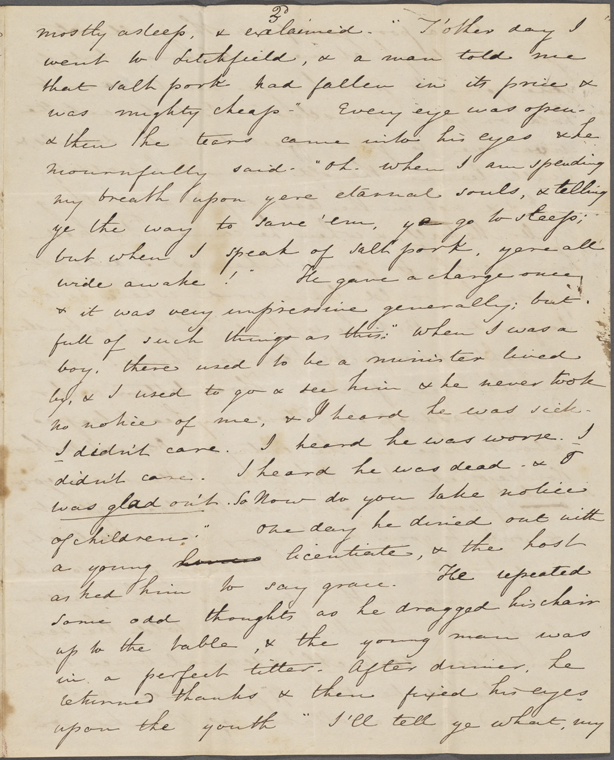 3d
mostly asleep, & exclaimed. "T'other day I
went to Litchfield, & a man told me
that salt pork had fallen in its price &
was mighty cheap-" Every eye was open-
& then the tears came into his eyes & he
mournfully said- "Oh. when I am spending
my breath upon yere eternal souls, & telling
ye the way to save 'em, ye go to sleep;
but when I speak of salt pork, yere all
wide awake!" He gave a charge once,
& it was very impressive generally; but
full of such things as this;" When I was a
boy, there used to be a minister lived
by, & I used to go & see him & he never took
no notice of me, & I heard he was sick-
I didn't care. I heard he was worse. I
didn't care. I heard he was dead - & I
was glad on't. So Now do you take notice
of children." One day he dined out with
a young licentiate, & the host
asked him to say grace. He repeated
some odd thoughts as he dragged his chair
up to the table, & the young man was
in a perfect titter. After dinner, he
returned thanks & then fixed his eyes
upon the youth "I'll tell ye what, my